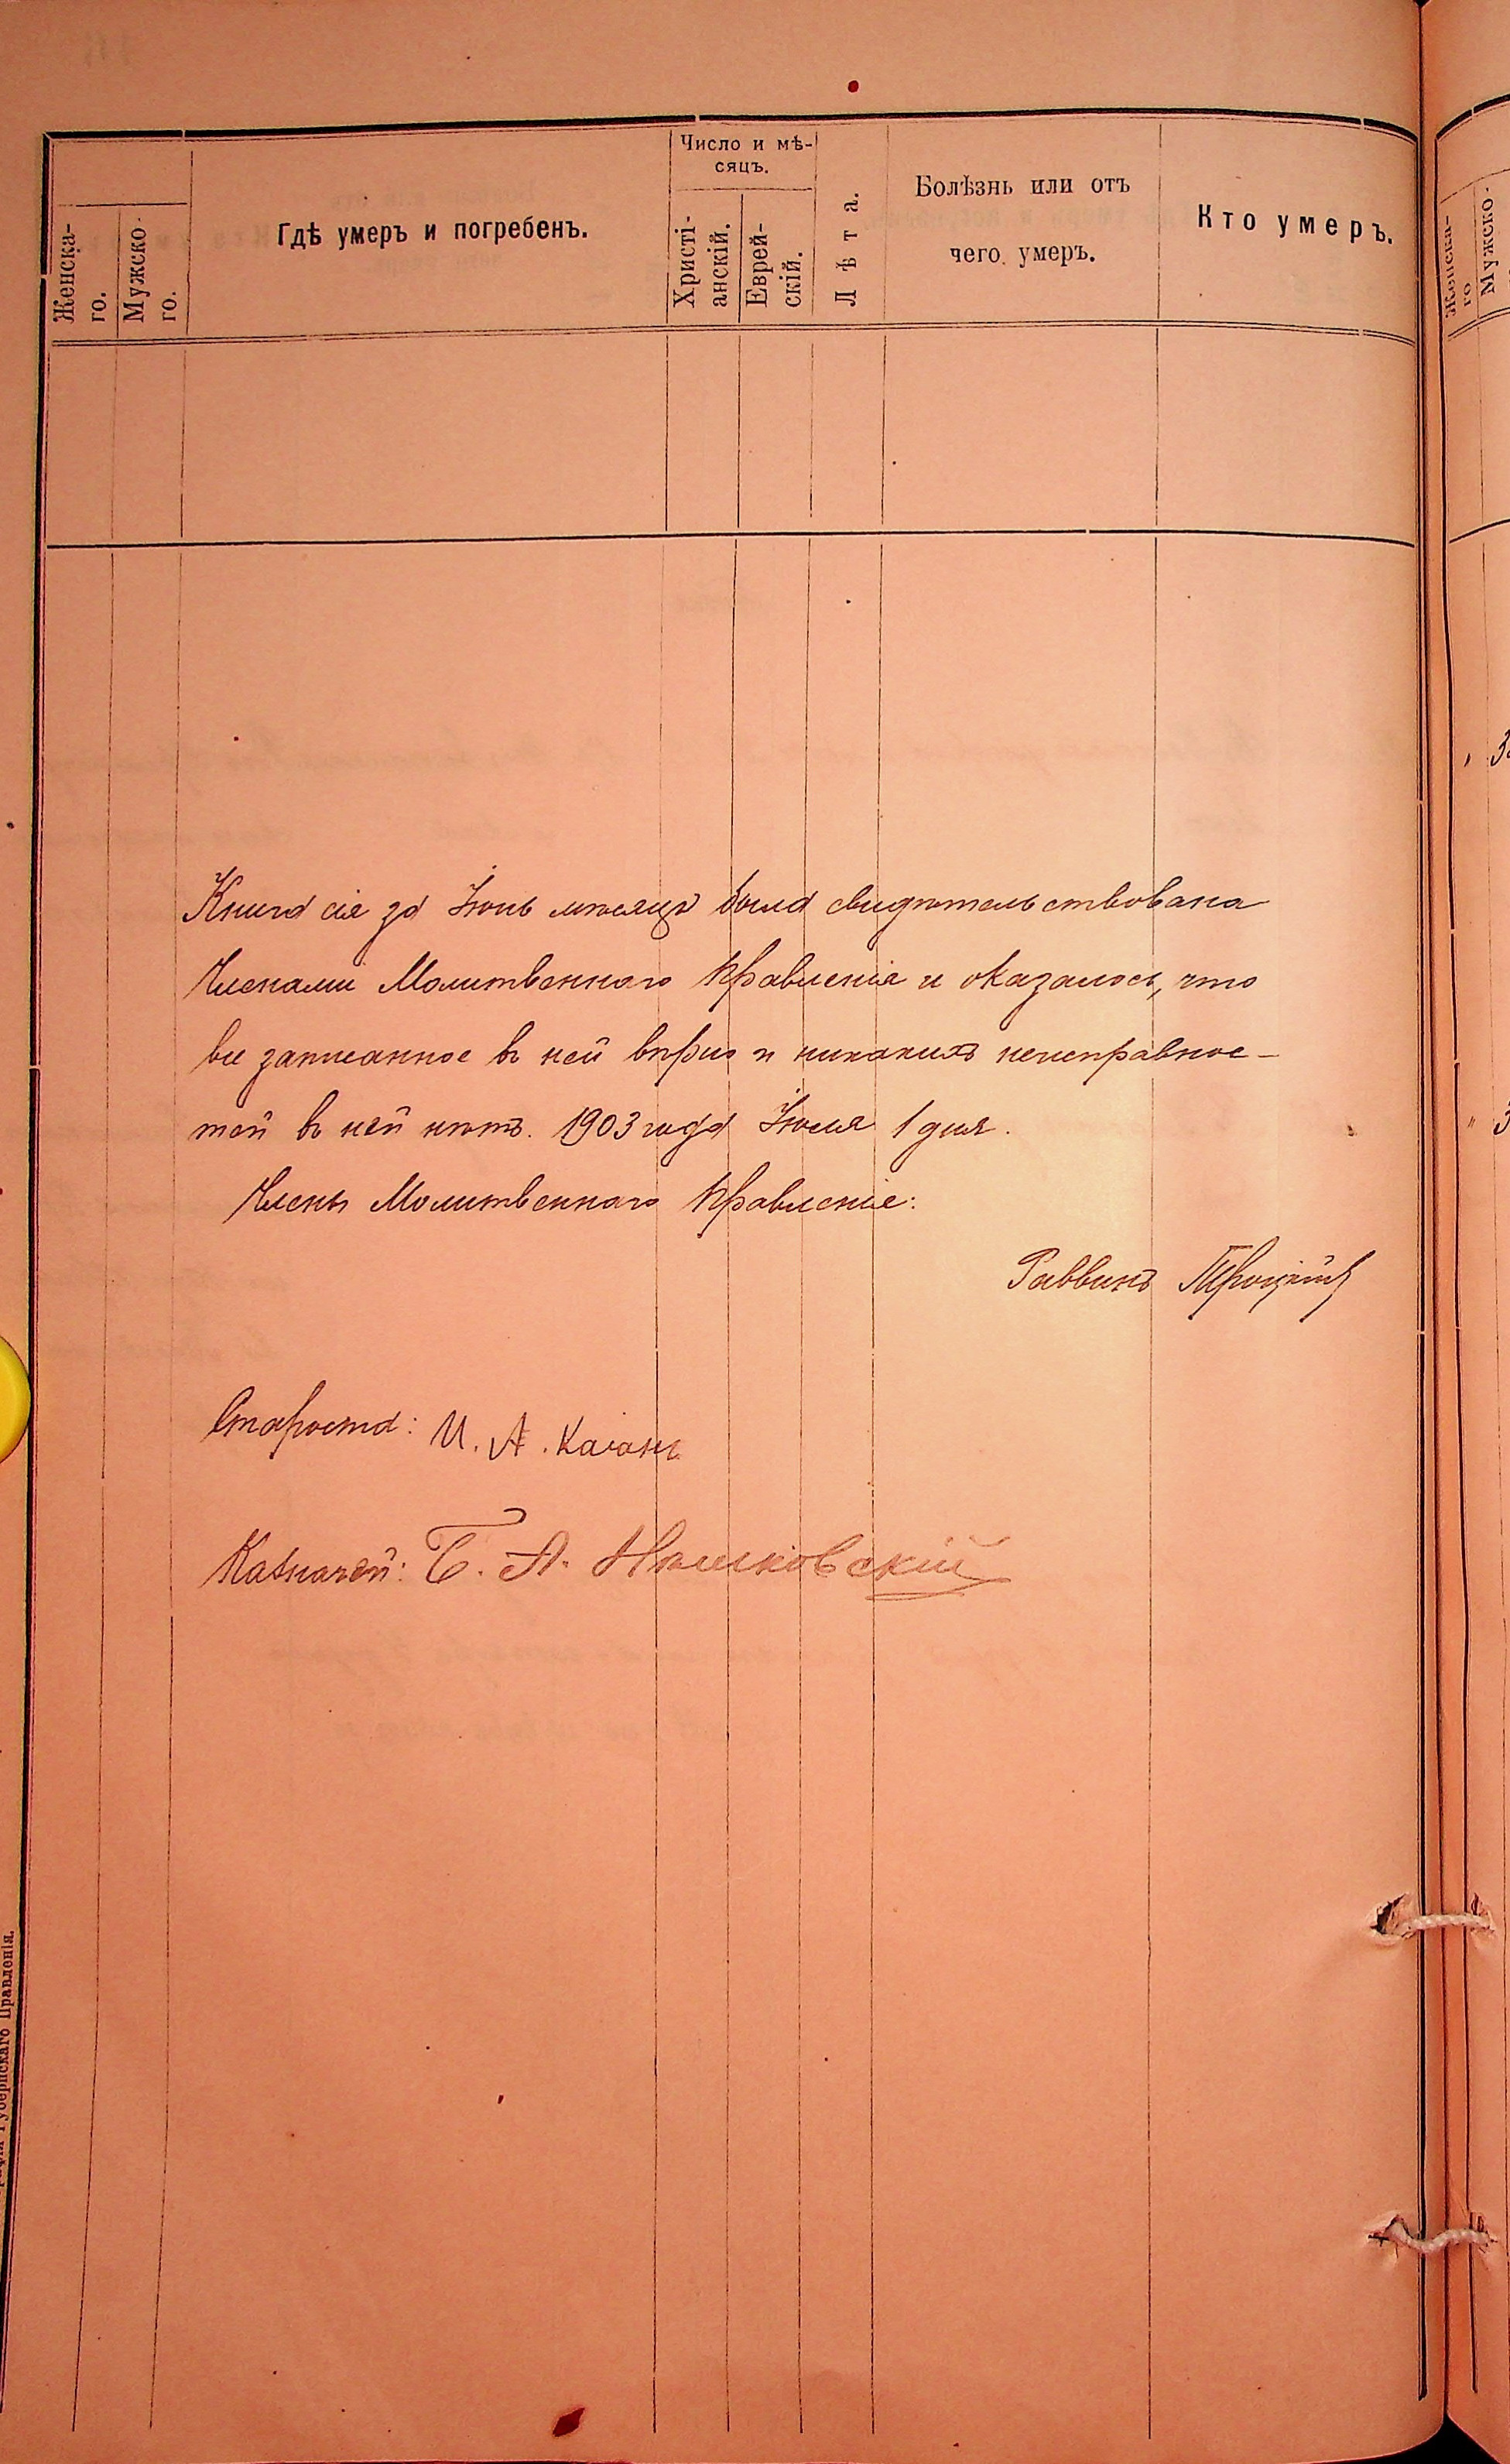 Число и мѣ-
сяцъ.
Женска-
го.
Мужско-
го.
Гдѣ умеръ и погребенъ.
Христі-
анскій.
Еврей-
скій.
Лѣта.
Болѣзнь или отъ
чего умеръ.
Кто умеръ.
Книга сія за Іюнь мѣсяцъ была свидѣтельствована
Членами Молитвеннаго Правленія и оказалось, что
все записанное въ ней вѣрно и никакихъ неисправнос-
тей въ ней нѣтъ. 1903 года Іюля 1 дня.
Члены Молитвеннаго Правленія:
Раввинъ Троцкій
Староста: И. А. Каганъ
Казначей: Б. А.
Губернскаго Правленія.
Женска-
го
Мужско-